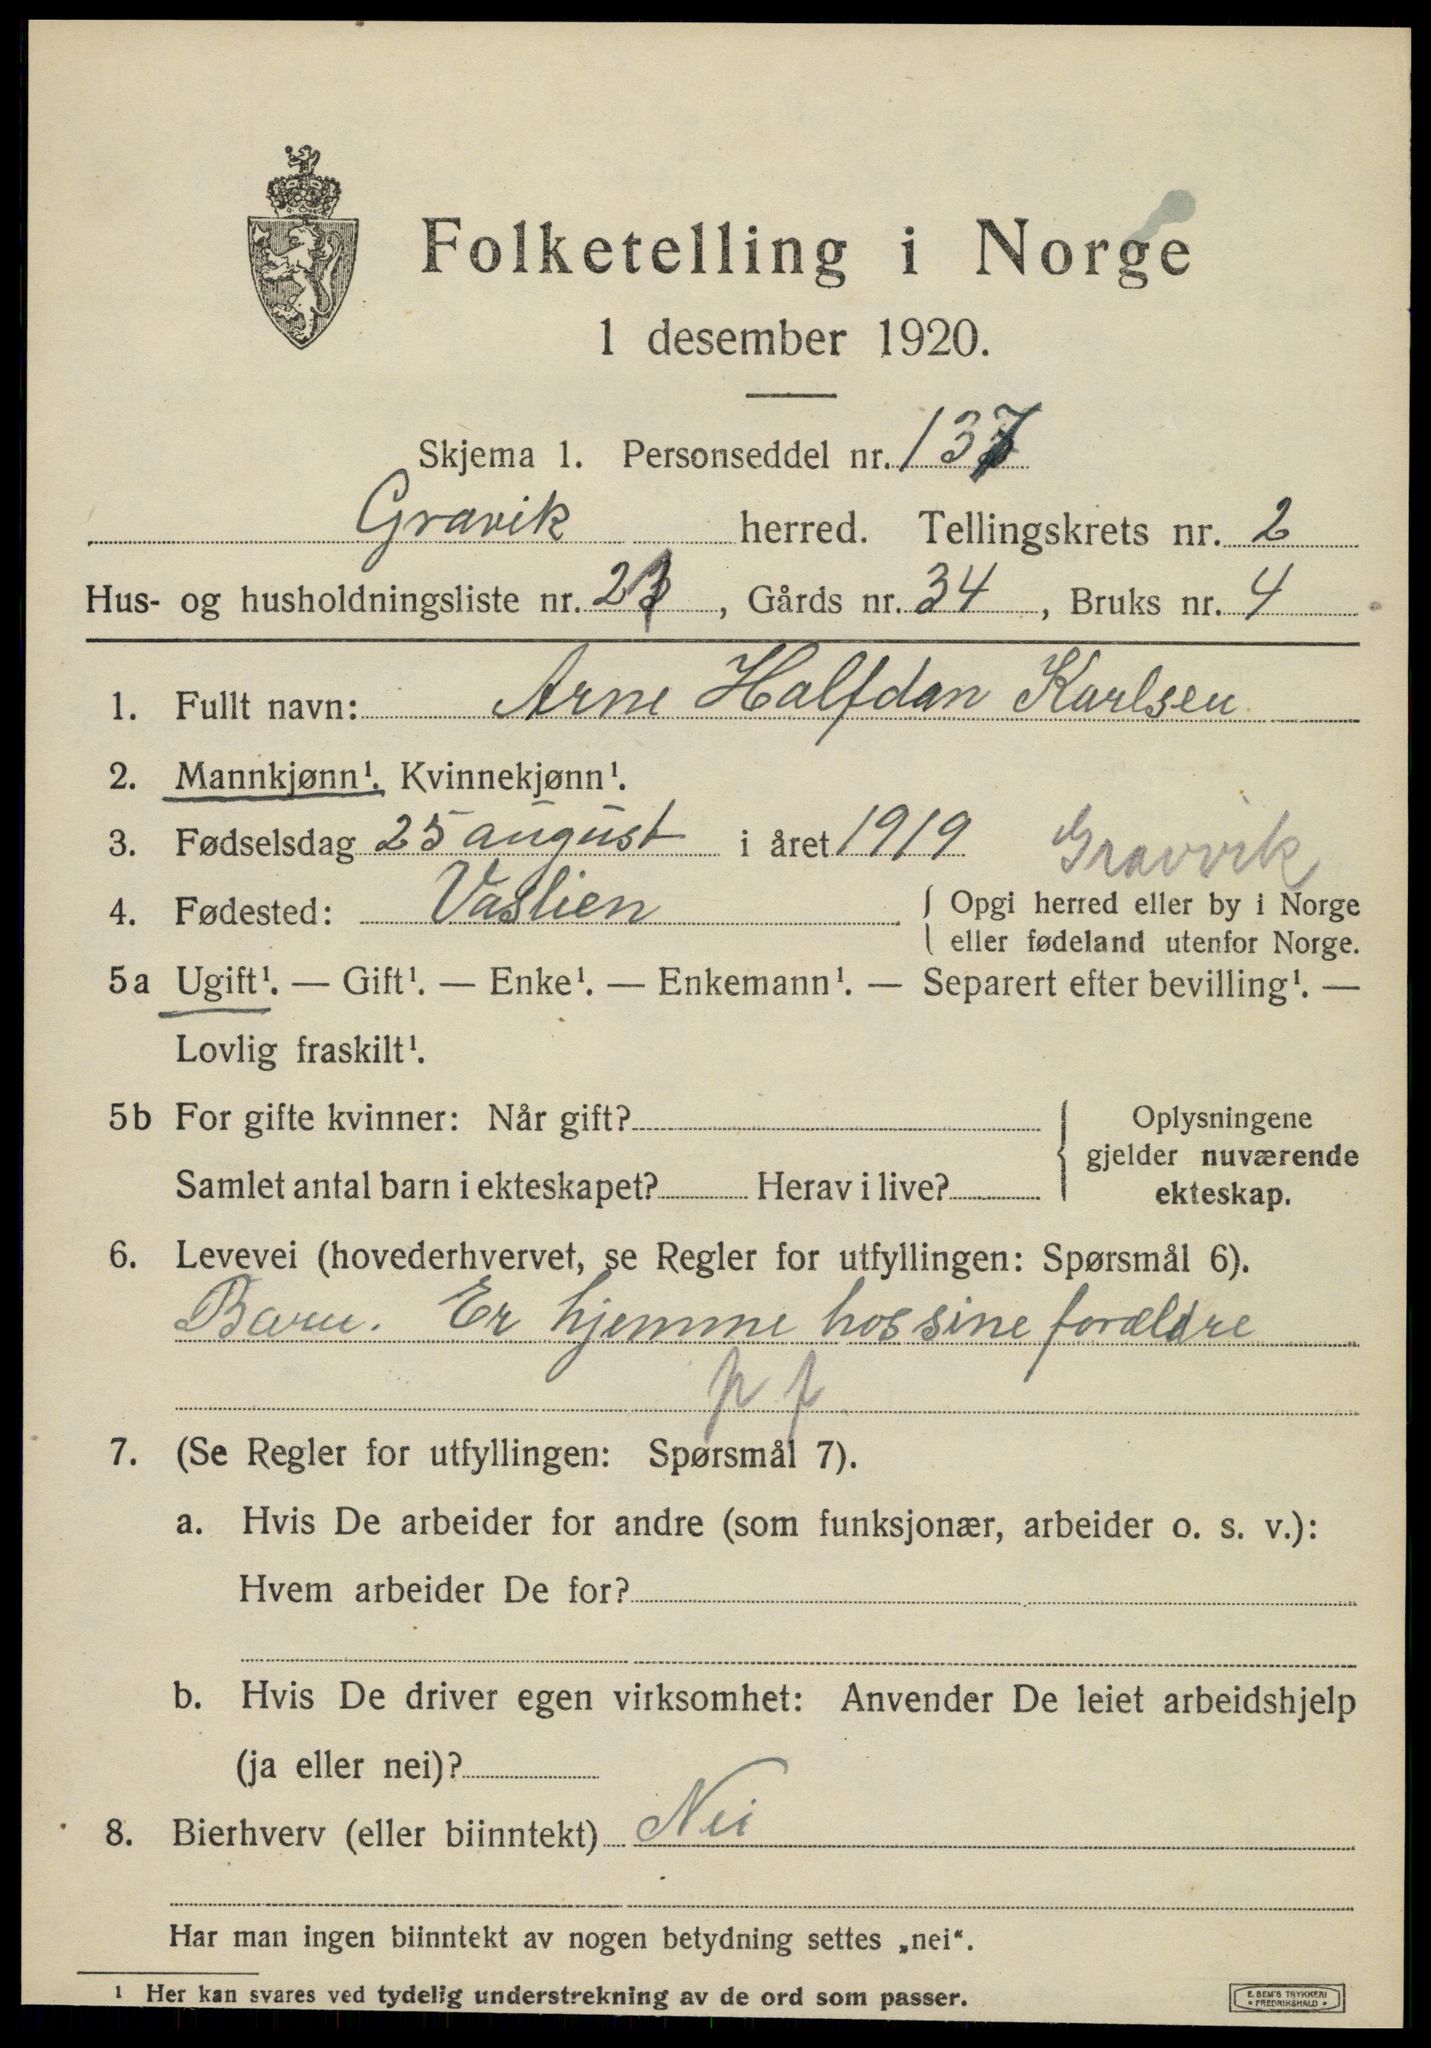 Folketelling i Norge
1 desember 1920.
Skjema 1. Personseddel nr. 137
Gravik herred. Tellingskrets nr. 2
Hus- og husholdningsliste nr. 2, Gårds nr. 34, Bruks nr. 4
1. Fullt navn: Arne Halfdan Karlsen
2. Mannkjønn¹. Kvinnekjønn¹.
3. Fødselsdag 25 august i året 1919 Gravvik
4. Fødested: Vaslien { Opgi herred eller by i Norge
eller fødeland utenfor Norge.
5a Ugift¹. — Gift¹. — Enke¹. — Enkemann¹. — Separert efter bevilling¹. —
Lovlig fraskilt¹.
5b For gifte kvinner: Når gift? { Oplysningene
gjelder nuværende
Samlet antal barn i ekteskapet? Herav i live? ekteskap.
6. Levevei (hovederhvervet, se Regler for utfyllingen: Spørsmål 6).
Barn. Er hjemme hos sine forældre
p f
7. (Se Regler for utfyllingen: Spørsmål 7).
a. Hvis De arbeider for andre (som funksjonær, arbeider o. s. v.):
Hvem arbeider De for?
b. Hvis De driver egen virksomhet: Anvender De leiet arbeidshjelp
(ja eller nei)?
8. Bierhverv (eller biinntekt) Nei
Har man ingen biinntekt av nogen betydning settes „nei“.
¹ Her kan svares ved tydelig understrekning av de ord som passer.
E. SEM'S TRYKKERI
FREDRIKSHALD